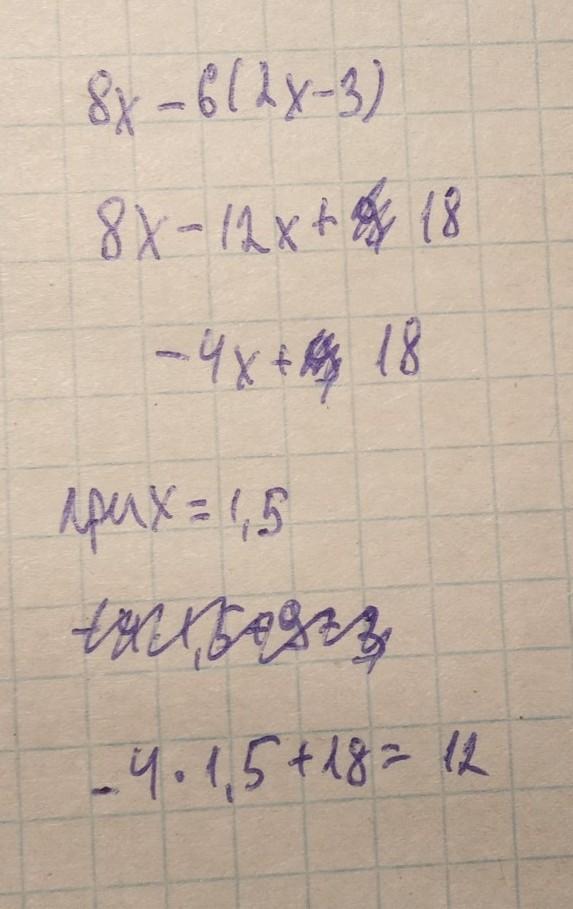 8x - 6(2x-3)
8x - 12x + 18
-4x + 18
при x = 1,5
-4 · 1,5 + 18 = 12